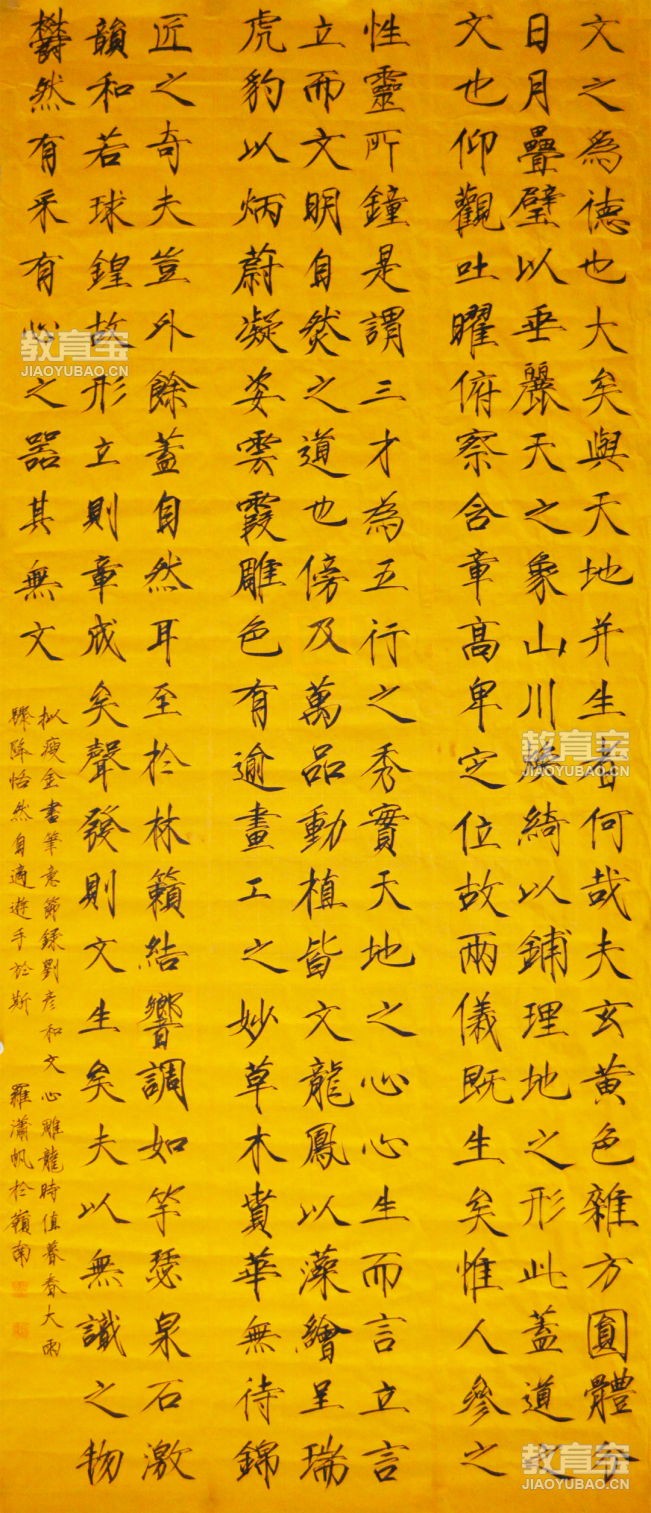 文之為德也大矣與天地并生者何哉夫玄黄色雜方圓體分
日月疊璧以垂麗天之象山川焕綺以鋪理地之形此蓋道之
文也仰觀吐曜俯察含章高卑定位故兩儀既生矣惟人參之
性靈所鐘是謂三才為五行之秀實天地之心心生而言立言
立而文明自然之道也傍及萬品動植皆文龍鳳以藻繪呈瑞
虎豹以炳蔚凝姿雲霞雕色有逾畫工之妙草木賁華無待錦
匠之奇夫豈外餘蓋自然耳至於林籟結響調如竽瑟泉石激
韻和若球鍠故形立則章成矣聲發則文生矣夫以無識之物
鬱然有采有心之器其無文
拟瘦金書筆意節録劉彦和文心雕龍時值暮春大雨
驟降怡然自適遊手於斯 羅瀟帆於嶺南
教育宝
JIAOYUBAO.CN
教育宝
JIAOYUBAO.CN
教育宝
JIAOYUBAO.CN